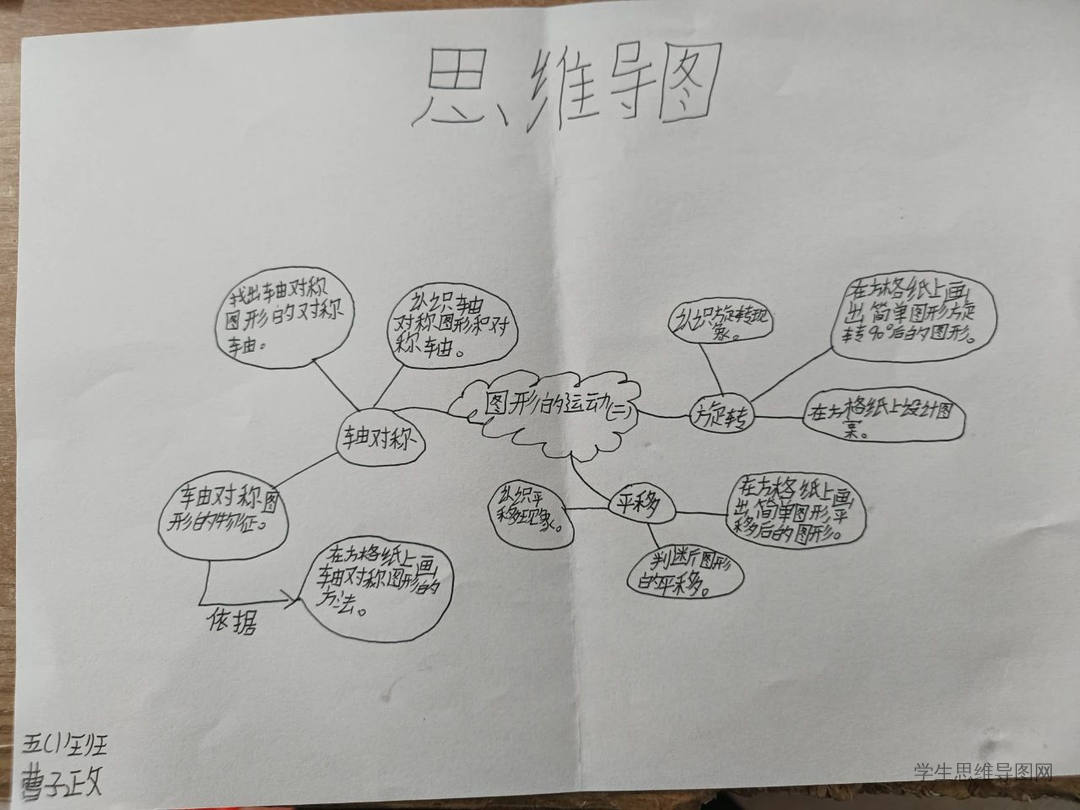 思维导图
找出轴对称
图形的对称
轴。
认识轴
对称图形和对
称轴。
认识旋转现
象。
在方格纸上画
出简单图形旋
转90°后的图形。
图形的运动(二)
轴对称
旋转
在方格纸上设计图
案。
轴对称图
形的特征。
认识平
移现象。
平移
在方格纸上画
出简单图形平
移后的图形。
判断图形
的平移。
在方格纸上画
轴对称图形的
方法。
依据
五(1)班
曹子正文
学生思维导图网